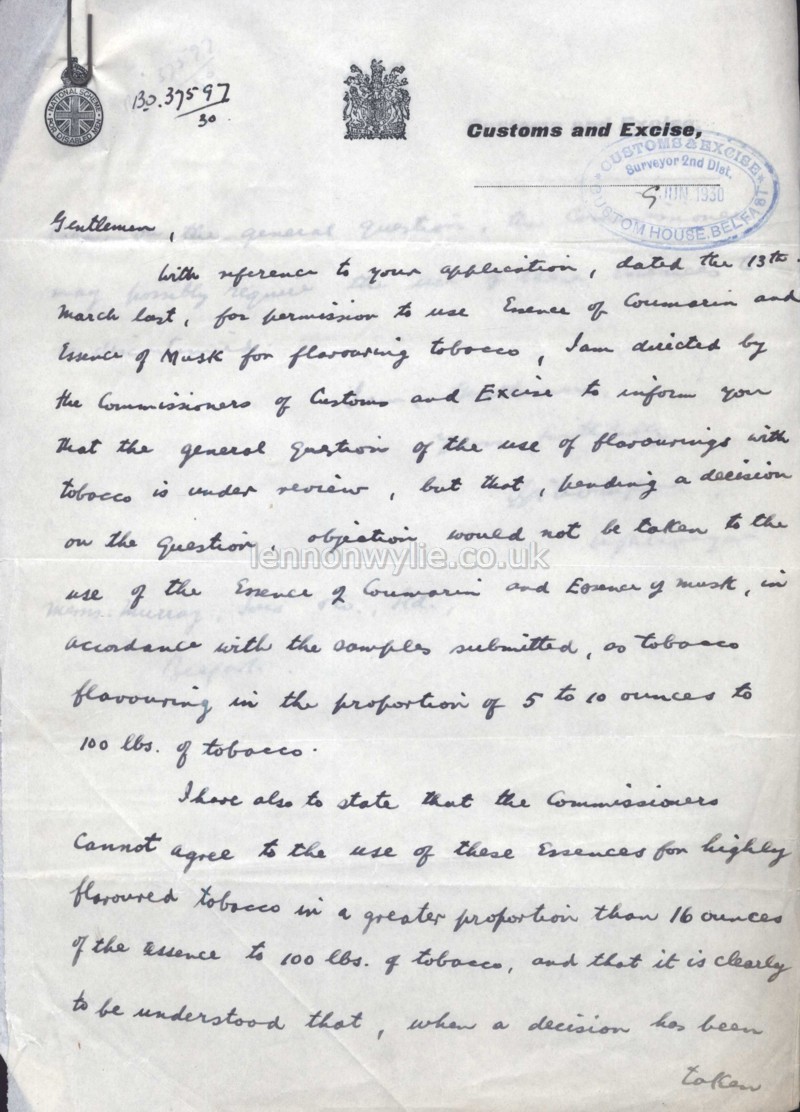 NATIONAL SCHEME
FOR DISABLED MEN
Bo. 37597
30
Customs and Excise,
CUSTOMS & EXCISE
Surveyor 2nd Dist.
9 JUN 1930
CUSTOM HOUSE. BELFAST
Gentlemen,
With reference to your application, dated the 13th.
March last, for permission to use Essence of Coumarin and
Essence of Musk for flavouring tobacco, I am directed by
the Commissioners of Customs and Excise to inform you
that the general question of the use of flavourings with
tobacco is under review, but that, pending a decision
on the question, objection would not be taken to the
lennonwylie.co.uk
use of the Essence of Coumarin and Essence of Musk, in
accordance with the samples submitted, as tobacco
flavouring in the proportion of 5 to 10 ounces to
100 lbs. of tobacco.
I have also to state that the Commissioners
cannot agree to the use of these Essences for highly
flavoured tobacco in a greater proportion than 16 ounces
of the assence to 100 lbs. of tobacco, and that it is clearly
to be understood that, when a decision has been
taken